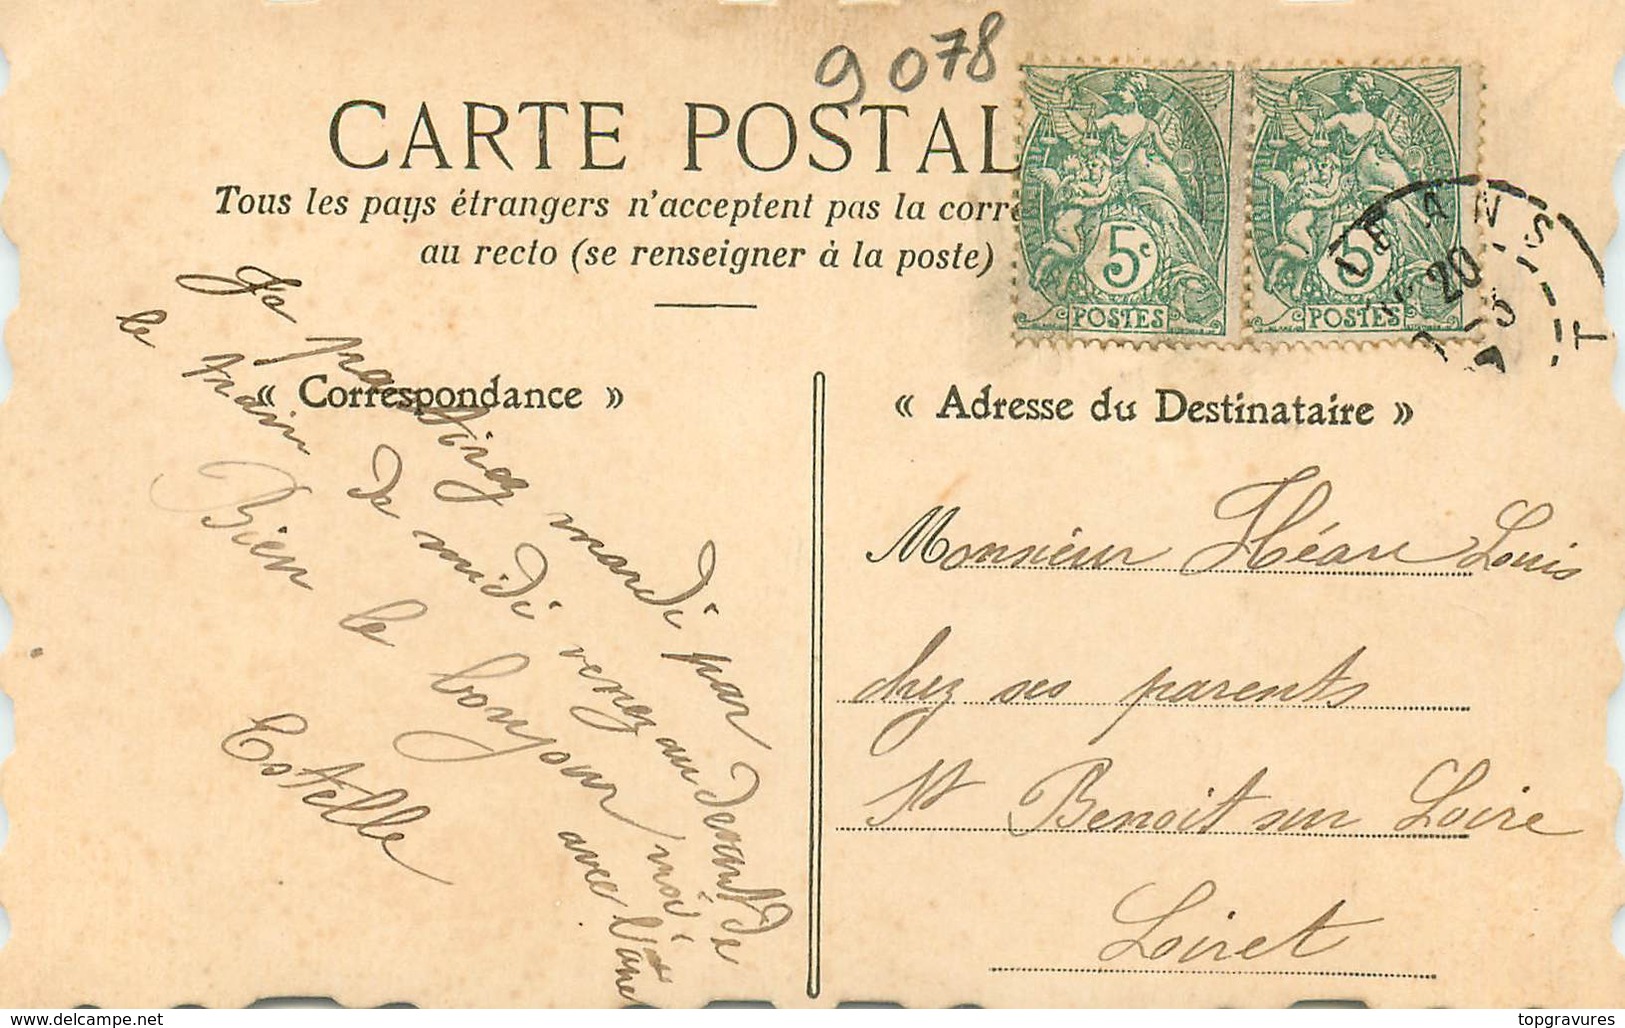 9078
CARTE POSTAL
Tous les pays étrangers n'acceptent pas la corre
au recto (se renseigner à la poste)
5c
POSTES
5c
POSTES
ORLEANS
20
« Correspondance »
Je partirez mardi par
le train de midi venez au devant de
Bien le bonjour moi avec l'âne
Cottelle
« Adresse du Destinataire »
Monsieur Héau Louis
chez ses parents
St Benoit sur Loire
Loiret
delcampe.net
topgravures